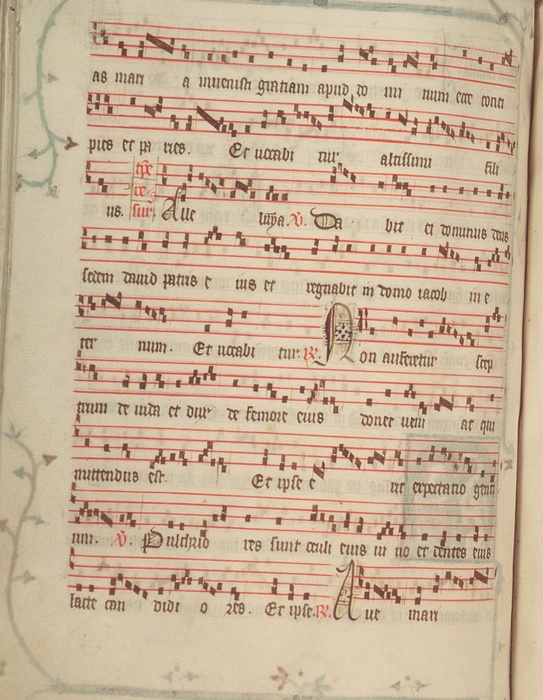 as mari a invenisti gratiam apud do mi num ecce conci
pies et pa ries. Et vocabi tur altissimi fili
us. tpe re sur Alle luya. V. Da bit ei dominus deus
sedem david patris e ius et regnabit in domo iacob in e
ter num. Et vocabi tur. R. Non auferetur scep
trum de iuda et dux de femore eius donec veni at qui
mittendus est. Et ipse e rit expectatio genti
um. V. Pulchrio res sunt oculi eius vi no et dentes eius
lacte can didi o res. Et ipse. R. Ave mari